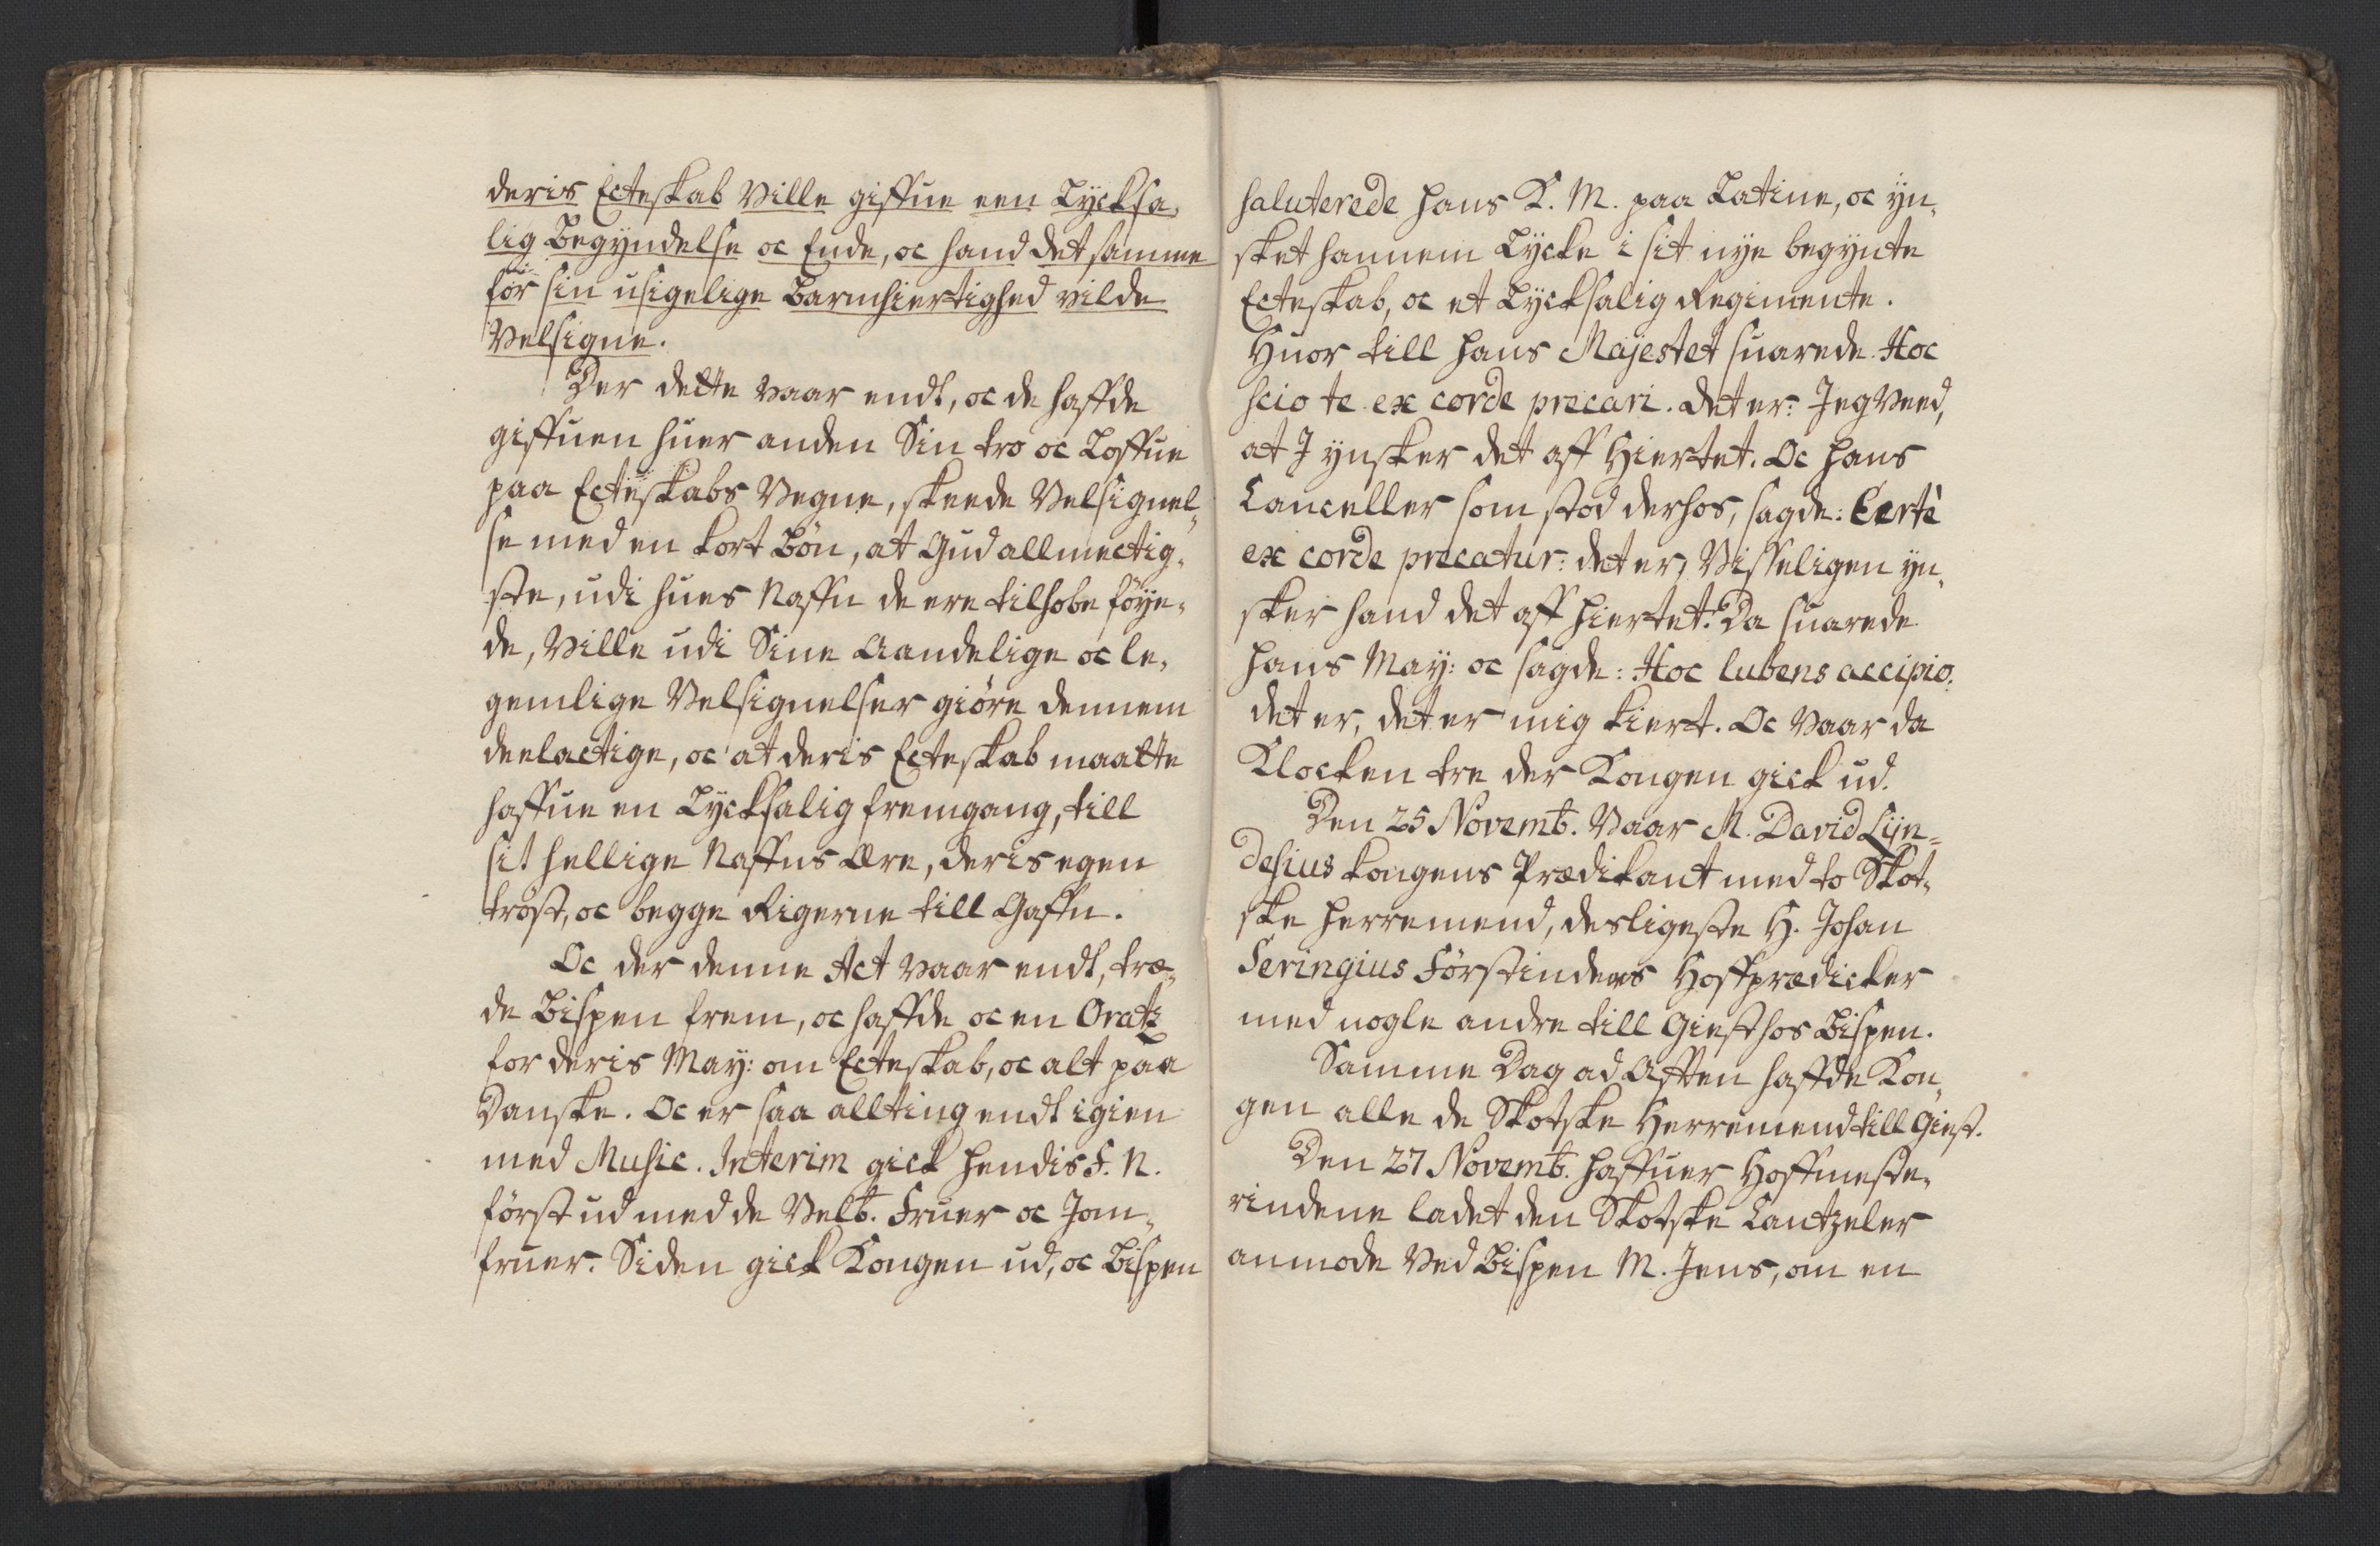 deris Ecteskab Ville giffue een Lycksa,
lig Begyndelse oc Ende, oc hand det samme
for sin usigelige Barmhiertighed vilde
Velsigne.
Der dette vaar endt, oc de haffde
giffuen huer anden Sin tro oc Loffue
paa Ecteskabs Vegne, skeede Velsignel,
se med en kort Bön, at Gud allmectig,
ste, udi hues Naffn de ere tilhobe föye,
de, Ville udi Sine Aandelige oc le,
gemlige Velsignelser giöre dennem
deelactige, oc at deris Ecteskab maatte
haffue en Lycksalig fremgang, till
sit hellige Naffns Ære, deris egen
tröst, oc begge Rigerne till Gaffn.
Oc der denne Act vaar endt, træ,
de Bispen frem, oc haffde oc en Oratz
for deris May: om Ecteskab, oc alt paa
Danske. Oc er saa allting endt igien
med Music. Interim gick hendis F. N.
först ud med de Velb. Fruer oc Jom,
fruer. Siden gick Kongen ud, oc Bispen
saluterede hans K. M. paa Latine, oc yn,
sket hannem Lycke i sit nye begynte
Ecteskab, oc et Lycksalig Regimente.
Huor till hans Majestet suarede. Hoc
scio te ex corde precari. det er: Jeg Veed,
at I ynsker det aff Hiertet. Oc hans
Canceller som stod derhos, sagde: Certè
ex corde precatur: det er, Visseligen yn,
sker hand det aff hiertet. Da suarede
hans May: oc sagde: Hoc lubens accipio.
det er, det er mig kiert. Oc vaar da
Klocken tre der Kongen gick ud.
Den 25 Novemb. Vaar M. David Lyn=
desius kongens Prædikant med to Skot,
ske herremend, desligeste H. Johan
Seringius Förstindens Hoffprædicker
med nogle andre till Giest hos Bispen.
Samme Dag ad Afften haffde Kon,
gen alle de Skotske Herremend till Giest.
Den 27 Novemb. haffuer Hoffmeste,
rindene ladet den Skotske Cantzeler
anmode Ved Bispen M. Jens, om en